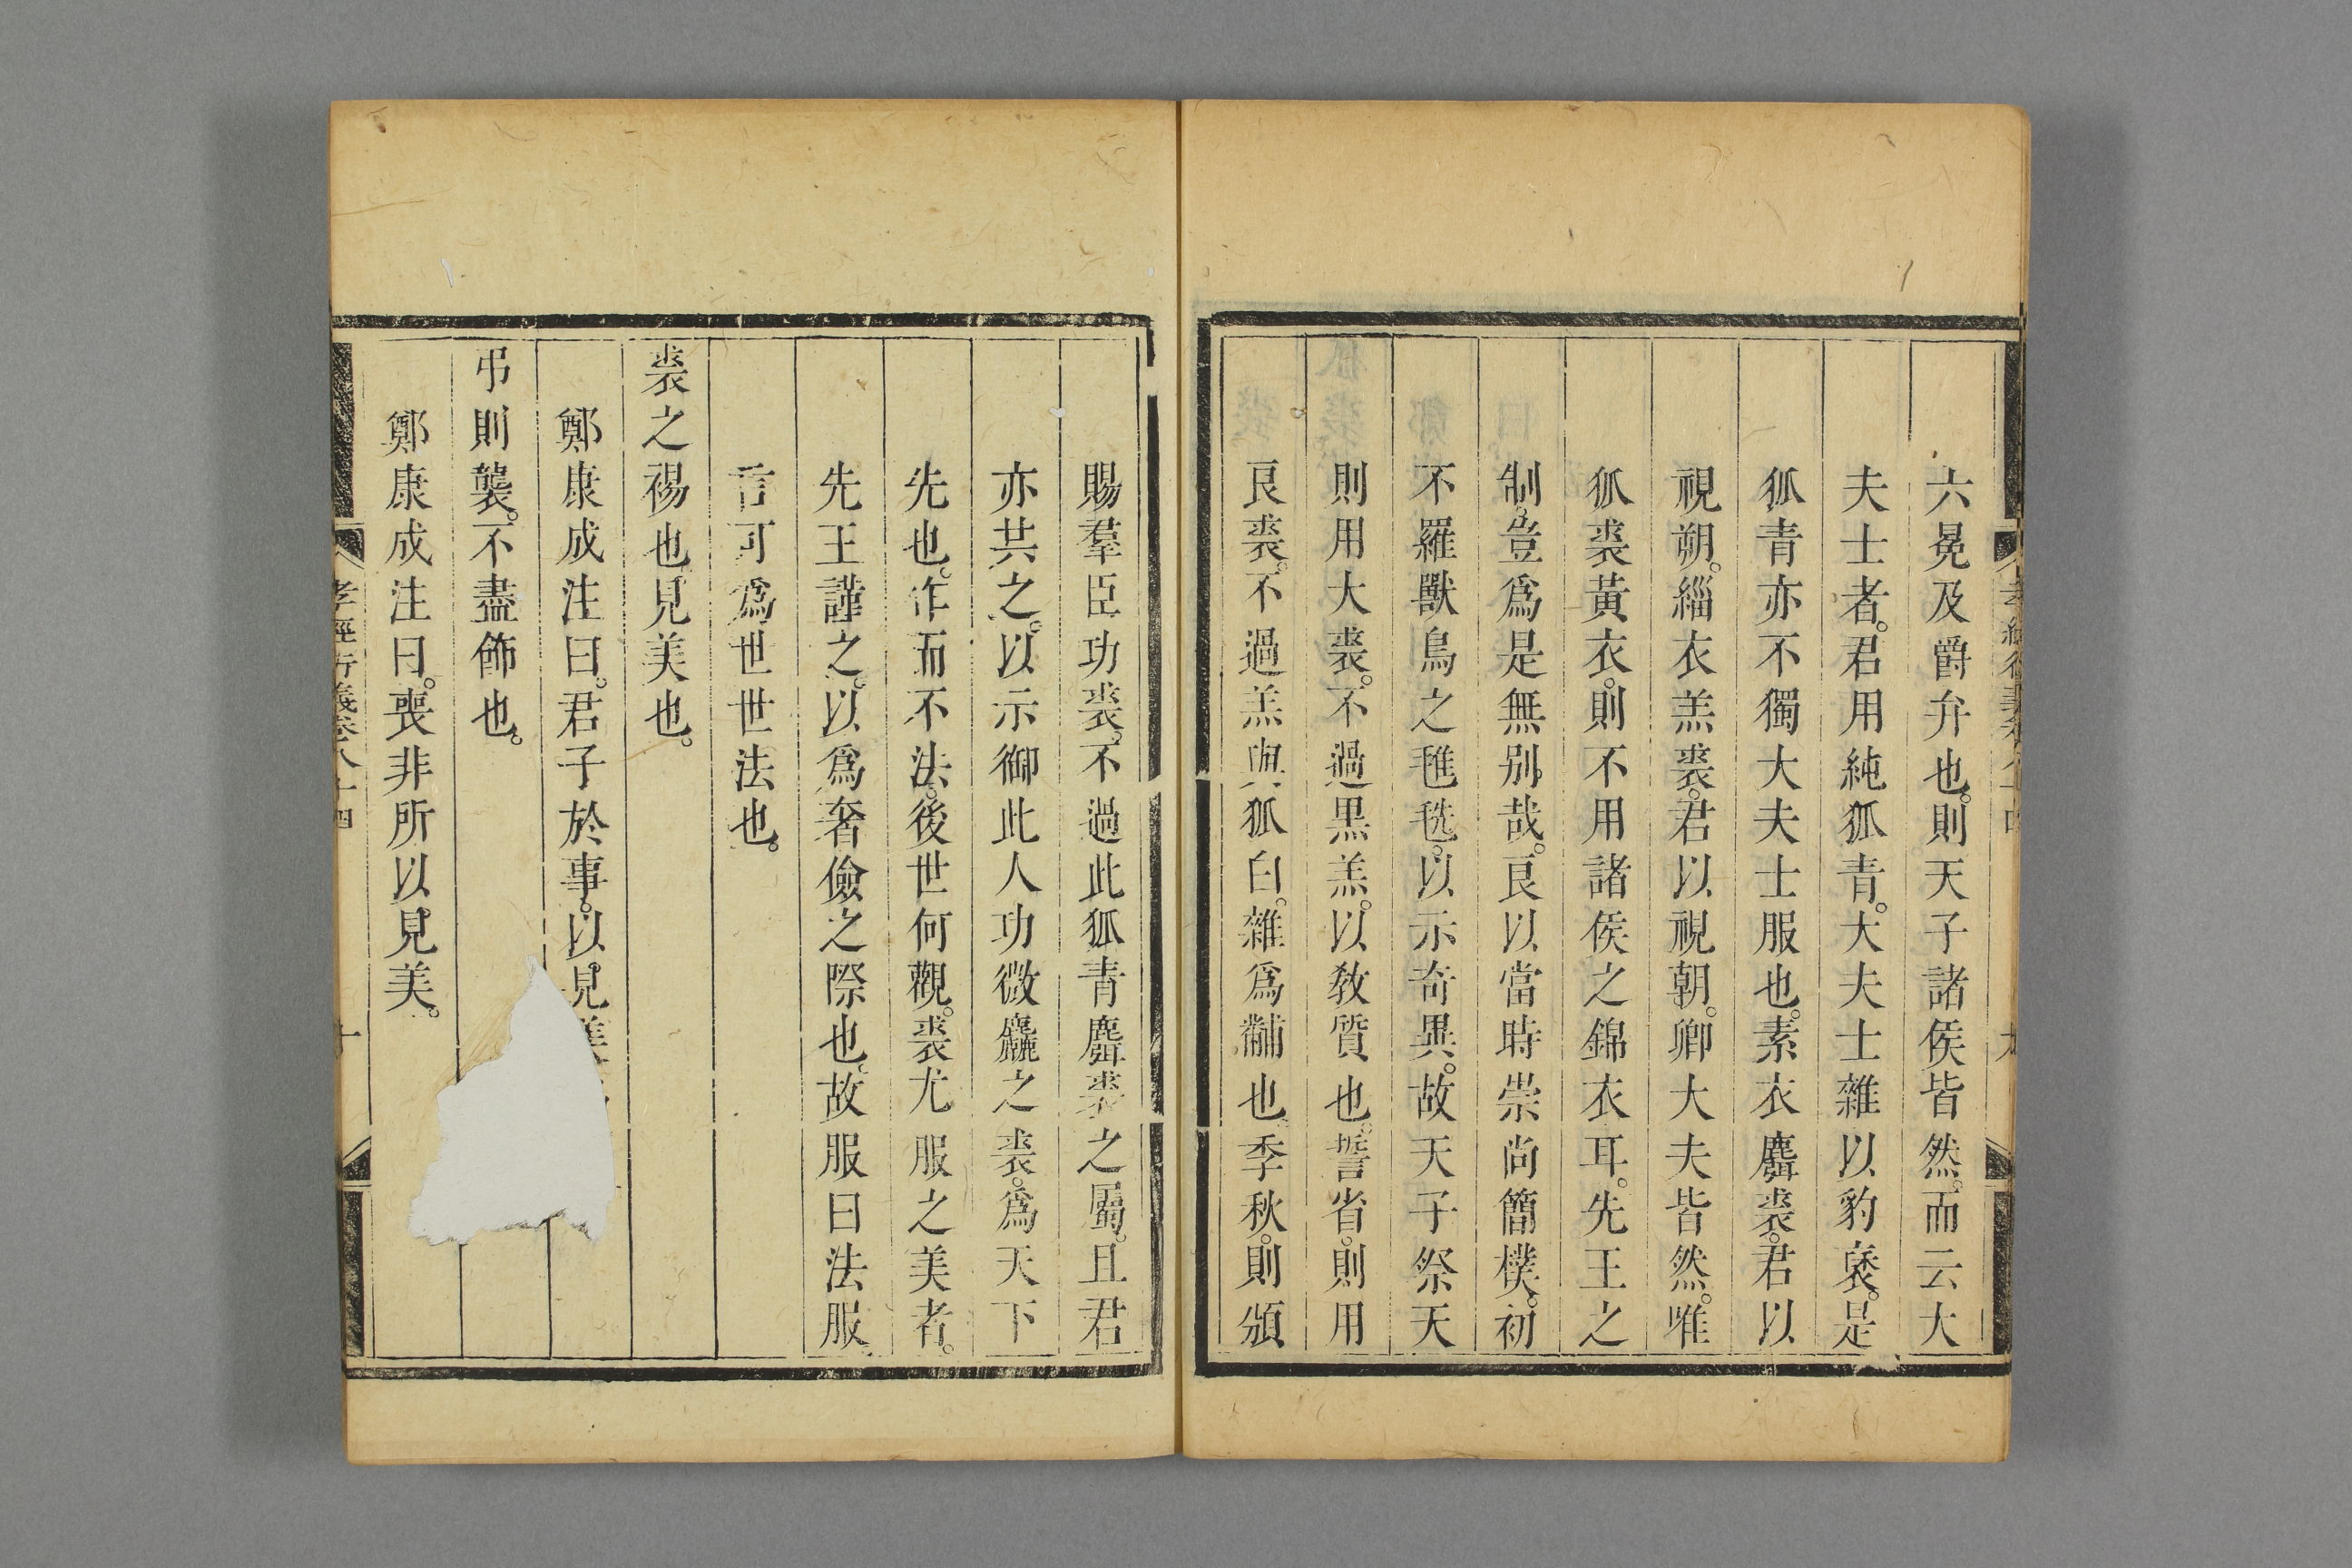 六冕及爵弁也。則天子諸侯皆然。而云大
夫士者。君用純狐青。大夫士雜以豹褎。是
狐青亦不獨大夫士服也。素衣麛裘。君以
視朔。緇衣羔裘。君以視朝。卿大夫皆然。唯
狐裘黃衣。則不用諸侯之錦衣耳。先王之
制。豈爲是無別哉。良以當時崇尚簡樸。初
不羅獸鳥之毳毨。以示奇異。故天子祭天
則用大裘。不過黑羔。以敎質也。誓省。則用
良裘。不過羔與狐白。雜爲黼也。季秋。則頒
賜羣臣功裘。不過此狐青麛裘之屬。且君
亦共之。以示御此人功微麤之裘。爲天下
先也。作而不法。後世何觀。裘尤服之美者。
先王謹之。以爲奢儉之際也。故服曰法服
言可爲世世法也。
裘之裼也。見美也。
鄭康成注曰。君子於事。以見美
弔則襲。不盡飾也。
鄭康成注曰。喪非所以見美。
孝經衍義卷八十四
十